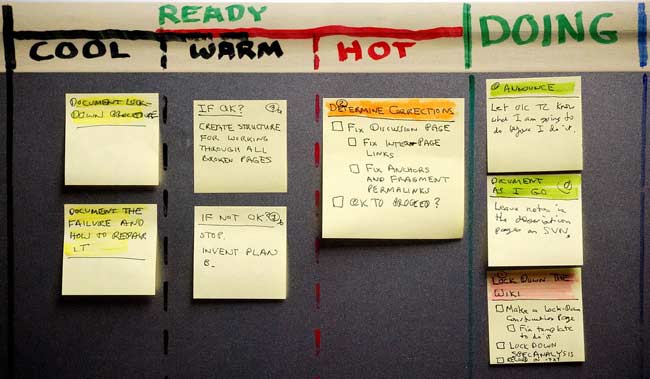 READY
COOL
WARM
HOT
DOING
DOCUMENT LOCK-
DOWN PROCEDURE
DOCUMENT THE
FAILURE AND
HOW TO REPAIR
IT
IF OK?
CREATE STRUCTURE
FOR WORKING
THROUGH ALL
BROKEN PAGES
IF NOT OK?
STOP.
INVENT PLAN
B.
DETERMINE CORRECTIONS
FIX DISCUSSION PAGE
FIX INTER-PAGE
LINKS
FIX ANCHORS
AND FRAGMENT
PERMALINKS
OK TO PROCEED?
ANNOUNCE
Let OIC TC know
what I am going to
do before I do it.
DOCUMENT
AS I GO
Leave notes in
the observation
pages on SVN.
LOCK DOWN THE
WIKI
Make a Lock-Down
Construction Page
Fix template
to do it
LOCK DOWN
SPEC ANALYSIS